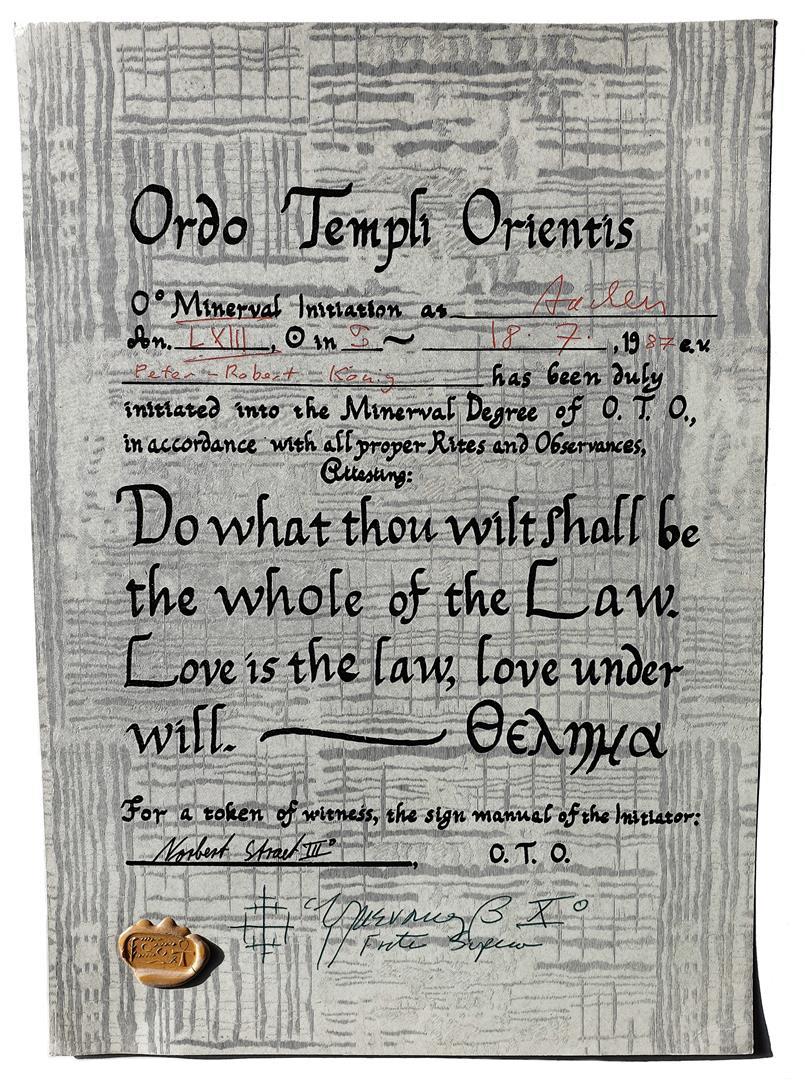 Ordo Templi Orientis
0° Minerval Initiation at Aachen
An. LXIII, ☉ in ♋ ~ 18. 7. , 1987 e.v.
Peter-Robert König has been duly
initiated into the Minerval Degree of O. T. O.,
in accordance with all proper Rites and Observances,
Attesting:
Do what thou wilt shall be
the whole of the Law.
Love is the law, love under
will. — Θελημα
For a token of witness, the sign manual of the Initiator:
Norbert Straet III°, O. T. O.
B X°
Frater Superior